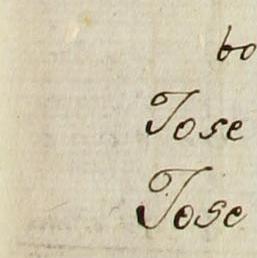 bo
Jose
Jose